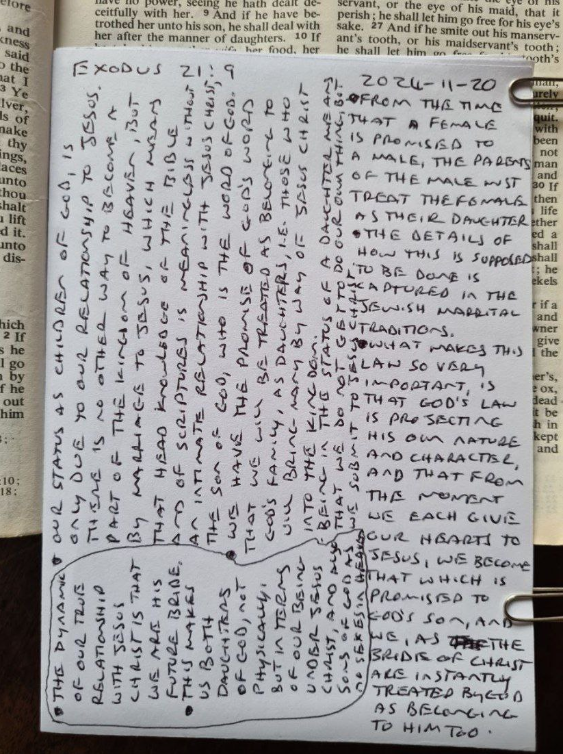 have no power, seeing he hath dealt de-
ceitfully with her. 9 And if he have be-
trothed her unto his son, he shall deal with
her after the manner of daughters. 10 If
her food, her
servant, or the eye of his maid, that it
perish; he shall let him go free for his eye's
sake. 27 And if he smite out his manserv-
ant's tooth, or his maidservant's tooth;
he shall let him go free
EXODUS 21:9
2024-11-20
• FROM THE TIME
THAT A FEMALE
IS PROMISED TO
A MALE, THE PARENTS
OF THE MALE MUST
TREAT THE FEMALE
AS THEIR DAUGHTER
• THE DETAILS OF
HOW THIS IS SUPPOSED
TO BE DONE IS
CAPTURED IN THE
JEWISH MARRITAL
TRADITIONS.
• WHAT MAKES THIS
LAW SO VERY
IMPORTANT, IS
THAT GOD'S LAW
IS PROJECTING
HIS OWN NATURE
AND CHARACTER,
AND THAT FROM
THE MOMENT
WE EACH GIVE
OUR HEARTS TO
JESUS, WE BECOME
THAT WHICH IS
PROMISED TO
GOD'S SON, AND
WE, AS THE
BRIDE OF CHRIST
ARE INSTANTLY
TREATED BY GOD
AS BELONGING
TO HIM TOO.
• OUR STATUS AS CHILDREN OF GOD, IS
ONLY DUE TO OUR RELATIONSHIP TO JESUS.
THERE IS NO OTHER WAY TO BECOME A
PART OF THE KINGDOM OF HEAVEN, BUT
BY MARRIAGE TO JESUS, WHICH MEANS
THAT HEAD KNOWLEDGE OF THE BIBLE
AND OF SCRIPTURES IS MEANINGLESS WITHOUT
AN INTIMATE RELATIONSHIP WITH JESUS CHRIST:
THE SON OF GOD, WHO IS THE WORD OF GOD.
• WE HAVE THE PROMISE OF GOD'S WORD
THAT WE WILL BE TREATED AS BELONGING TO
GOD'S FAMILY, AS DAUGHTERS, I.E. THOSE WHO
WILL BRING MANY BY WAY OF JESUS CHRIST
INTO THE KINGDOM.
• BEING IN THE STATUS OF A DAUGHTER MEANS
THAT WE DO NOT GET TO DO OUR OWN THING, BUT
WE SUBMIT TO JESUS CHRIST
• THE DYNAMIC
OF OUR TRUE
RELATIONSHIP
WITH JESUS
CHRIST IS THAT
WE ARE HIS
FUTURE BRIDE,
• THIS MAKES
US BOTH
DAUGHTERS
OF GOD, NOT
PHYSICALLY,
BUT IN TERMS
OF OUR BEING
UNDER JESUS
CHRIST, AND ALSO
SONS OF GOD AS
NO SEXES IN HEAVEN